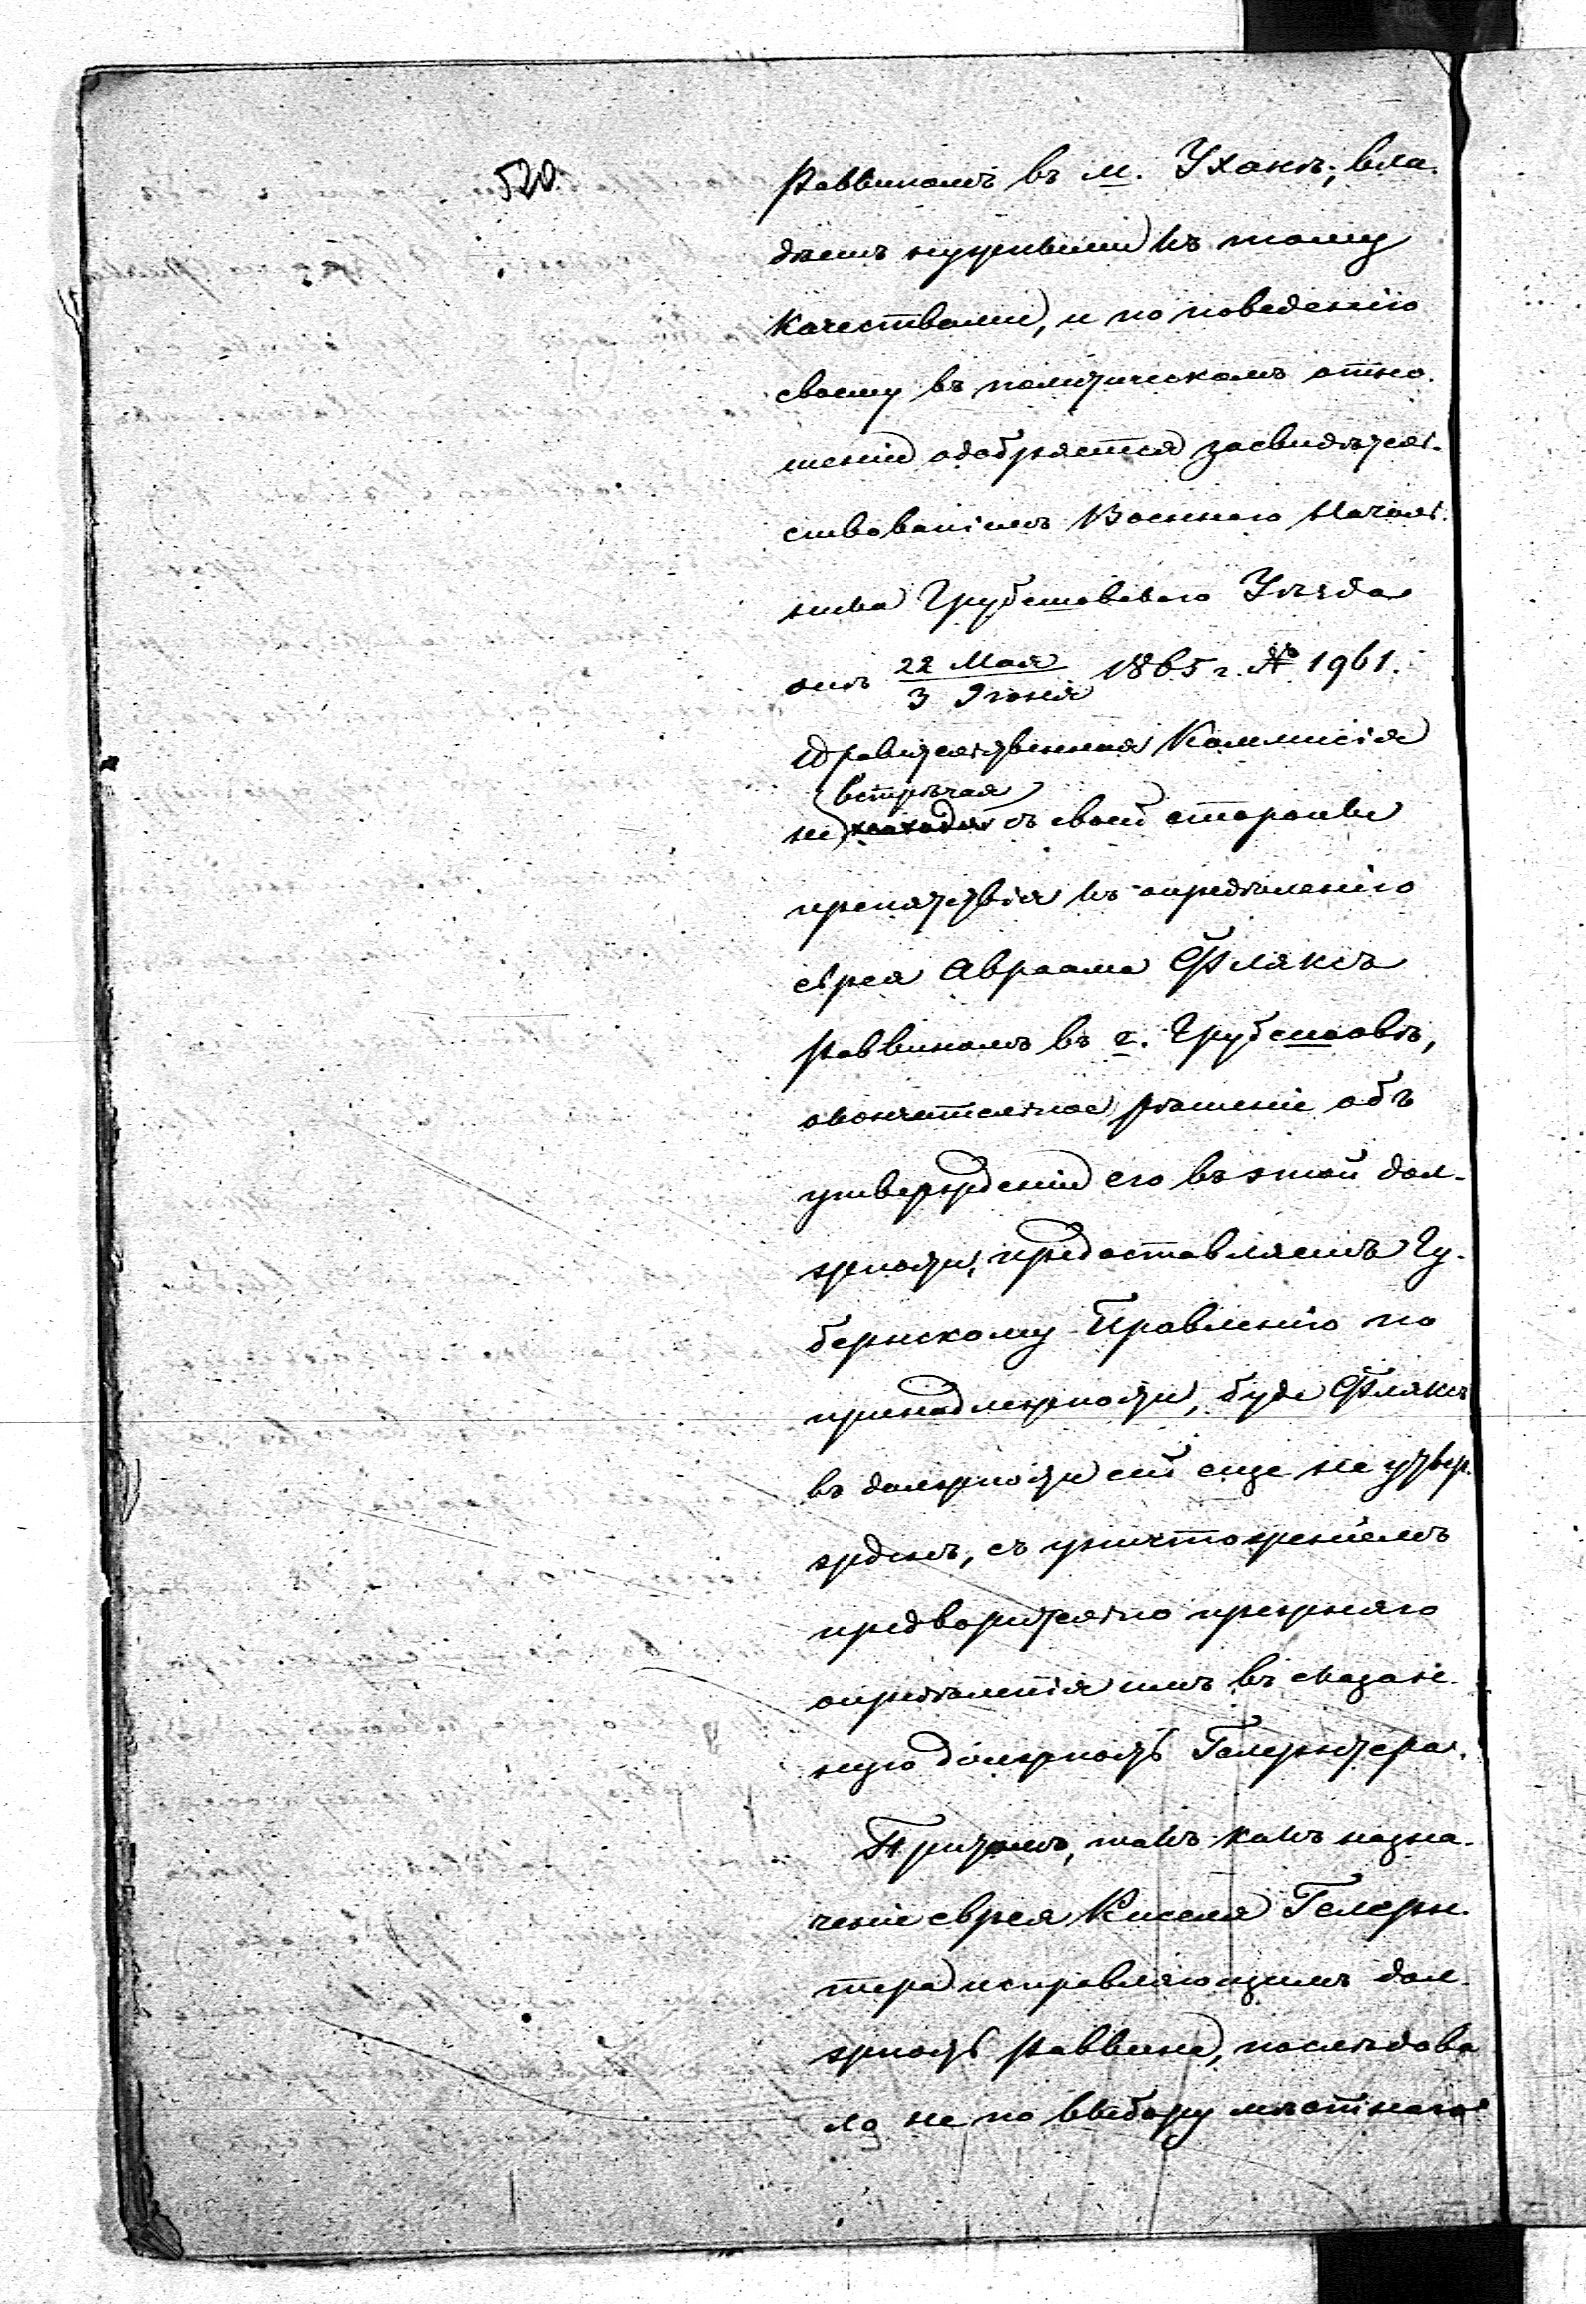 520.
Раввиномъ въ м. Ухане, вла-
дѣетъ нужными къ тому
качествами, и по поведенію
своему въ политическомъ отно-
шеніи одобряется засвидѣтель-
ствованіемъ Военнаго Началь-
ника Грубешовскаго Уѣзда
отъ 22 Мая / 3 Іюня 1865 г. № 1961.
Правительственная Коммисія
встрѣчая
не находя съ своей стороны
препятствія къ опредѣленію
еврея Авраама Флякса
Раввиномъ въ г. Грубешовѣ,
окончательное рѣшеніе объ
утвержденіи его въ этой дол-
жности, предоставляетъ Гу-
бернскому Правленію по
принадлежности, буде Фляксъ
въ должности сей еще не утвер-
жденъ, съ уничтоженіемъ
предварительно прежняго
опредѣленія имъ въ сказан-
ную должность Гелернтера.
Притомъ, такъ какъ назна-
ченіе еврея Киселя Гелерн-
тера исправляющимъ дол-
жность Раввина, послѣдова
ло не по выбору мѣстнаго